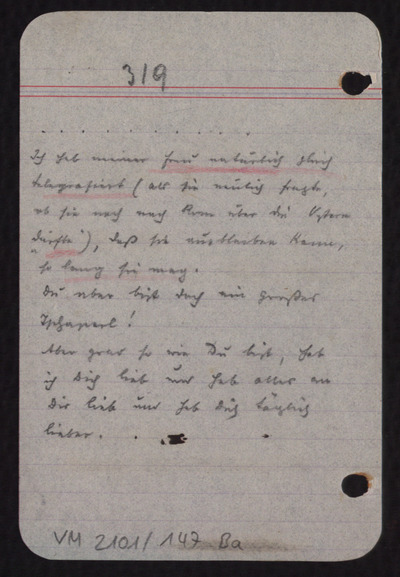 319
. . . . . . . . . . .
Ich hab meiner Frau natürlich gleich
telegrafiert (als sie neulich fragte,
ob sie noch nach Rom über die Ostern
"dürfte"), daß sie ausbleiben kann,
so lang sie mag.
Du aber bist doch ein großes
Tschaperl!
Aber grad so wie Du bist, hab
ich Dich lieb und hab alles an
Dir lieb und hab Dich täglich
lieber. . .
VM 2101/147 Ba